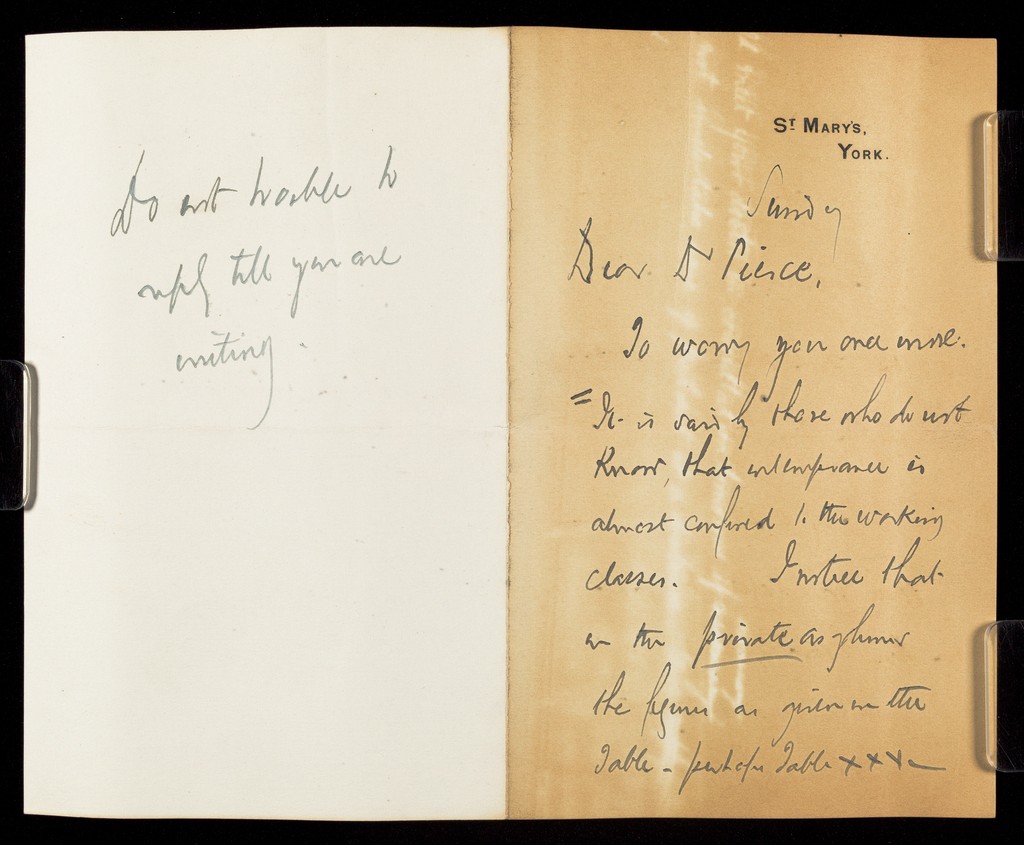 Do not trouble to
reply till you are
writing.
ST. MARY'S,
YORK.
Sunday
Dear Dr Pierce,
To worry you once more.
= It is said by those who do not
know, that intemperance is
almost confined to the working
classes. I notice that
in the private asylums
the figures as given in the
Table - perhaps Table XXX